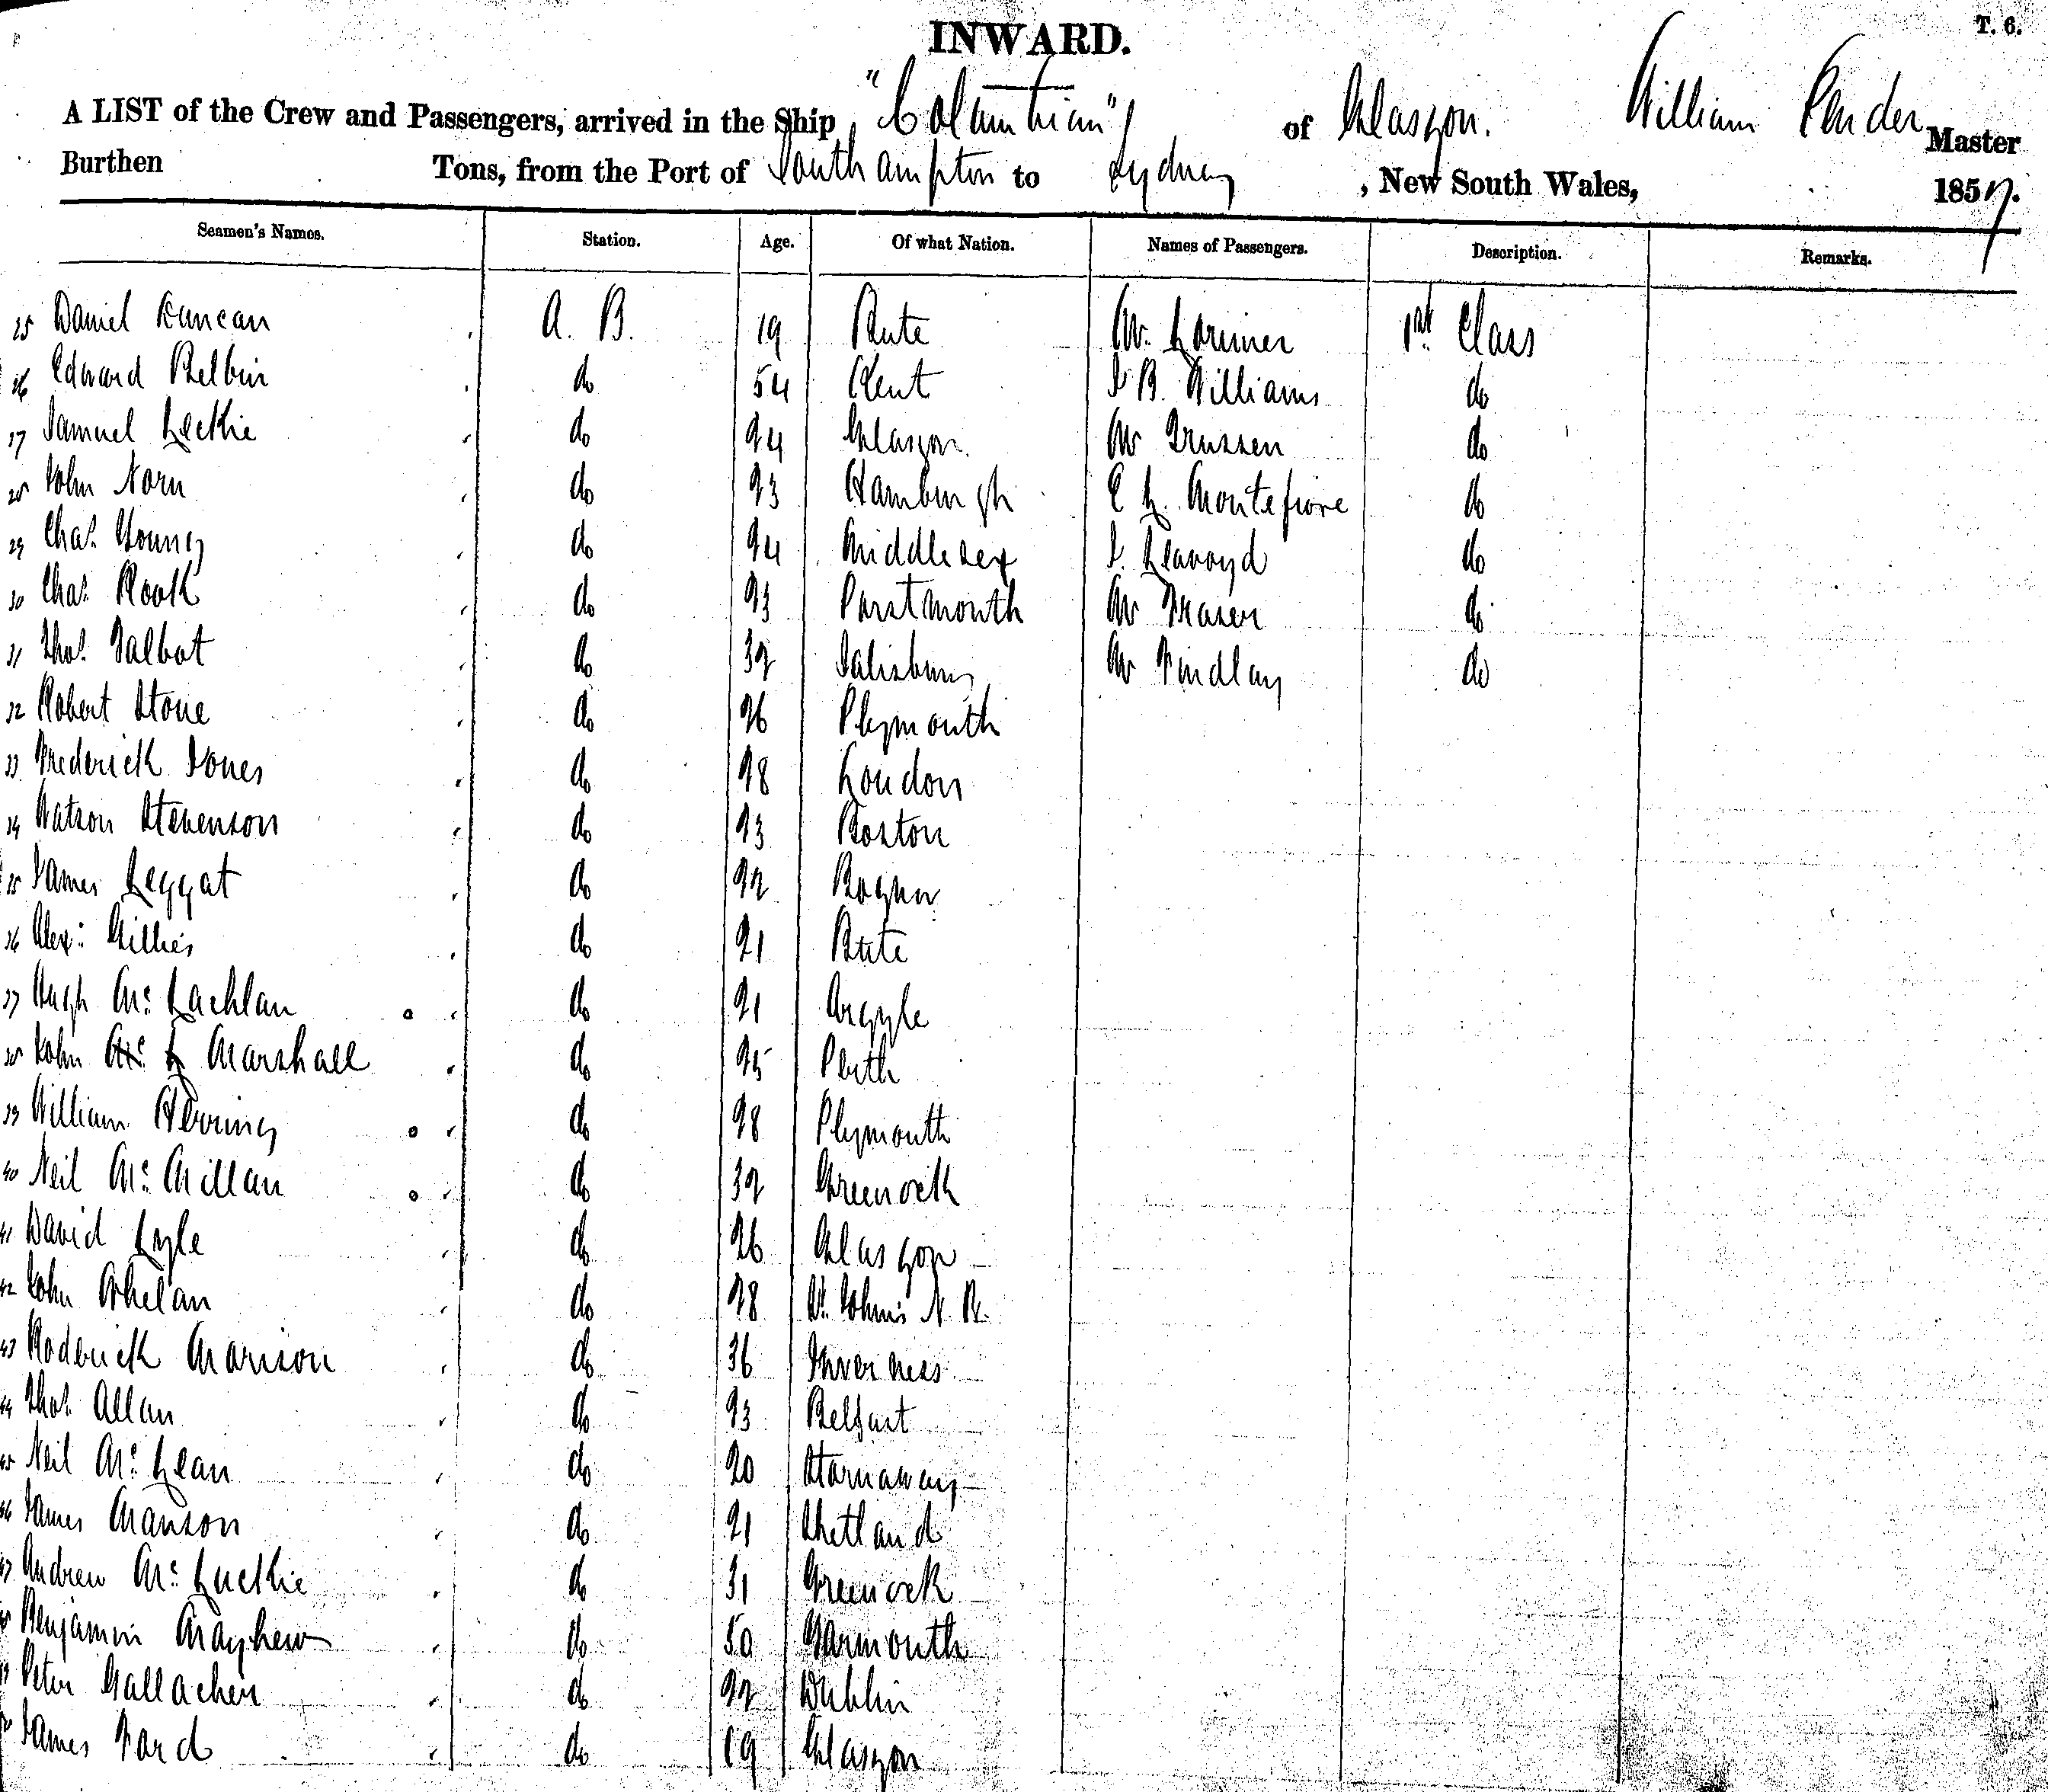 INWARD.
T. 6.
A LIST of the Crew and Passengers, arrived in the Ship "Columbian" of Glasgow. William Pender Master
Burthen Tons, from the Port of Southampton to Sydney, New South Wales, 1857.
Seamen's Names. Station. Age. Of what Nation. Names of Passengers. Description. Remarks.
25 Daniel Duncan A. B. 19 Bute Mr. Lorimer 1st Class
26 Edward Belbin do 54 Kent J B. Williams do
27 Samuel Leckie do 24 Glasgow Mr Trussen do
28 John Norn do 23 Hamburgh E L. Montefiore do
29 Chas. Young do 24 Middlesex J. Learoyd do
30 Chas. Rook do 23 Porstmouth Mr Fraser do
31 Thos. Talbot do 32 Salisbury Mr Findlay do
32 Robert Stone do 26 Plymouth
33 Frederick Jones do 28 London
34 Watson Stevenson do 23 Boston
35 James Leggat do 22 Bogner
36 Alexr. Gillies do 21 Bute
37 Hugh Mc. Lachlan do 21 Argyle
38 John Mc. L Marshall do 25 Perth
39 William Herring do 28 Plymouth
40 Neil Mc. Millan do 32 Greenock
41 David Lyle do 26 Glasgow
42 John Phelan do 28 St. John's N. B.
43 Roderick Morison do 36 Inverness
44 Thos. Allan do 23 Belfast
45 Neil Mc. Lean do 20 Stornaway
46 James Manson do 21 Shetland
47 Andrew Mc. Luckie do 31 Greenock
48 Benjamin Mayhew do 50 Yarmouth
49 Peter Gallacher do 22 Dublin
50 James Ford do 19 Glasgow